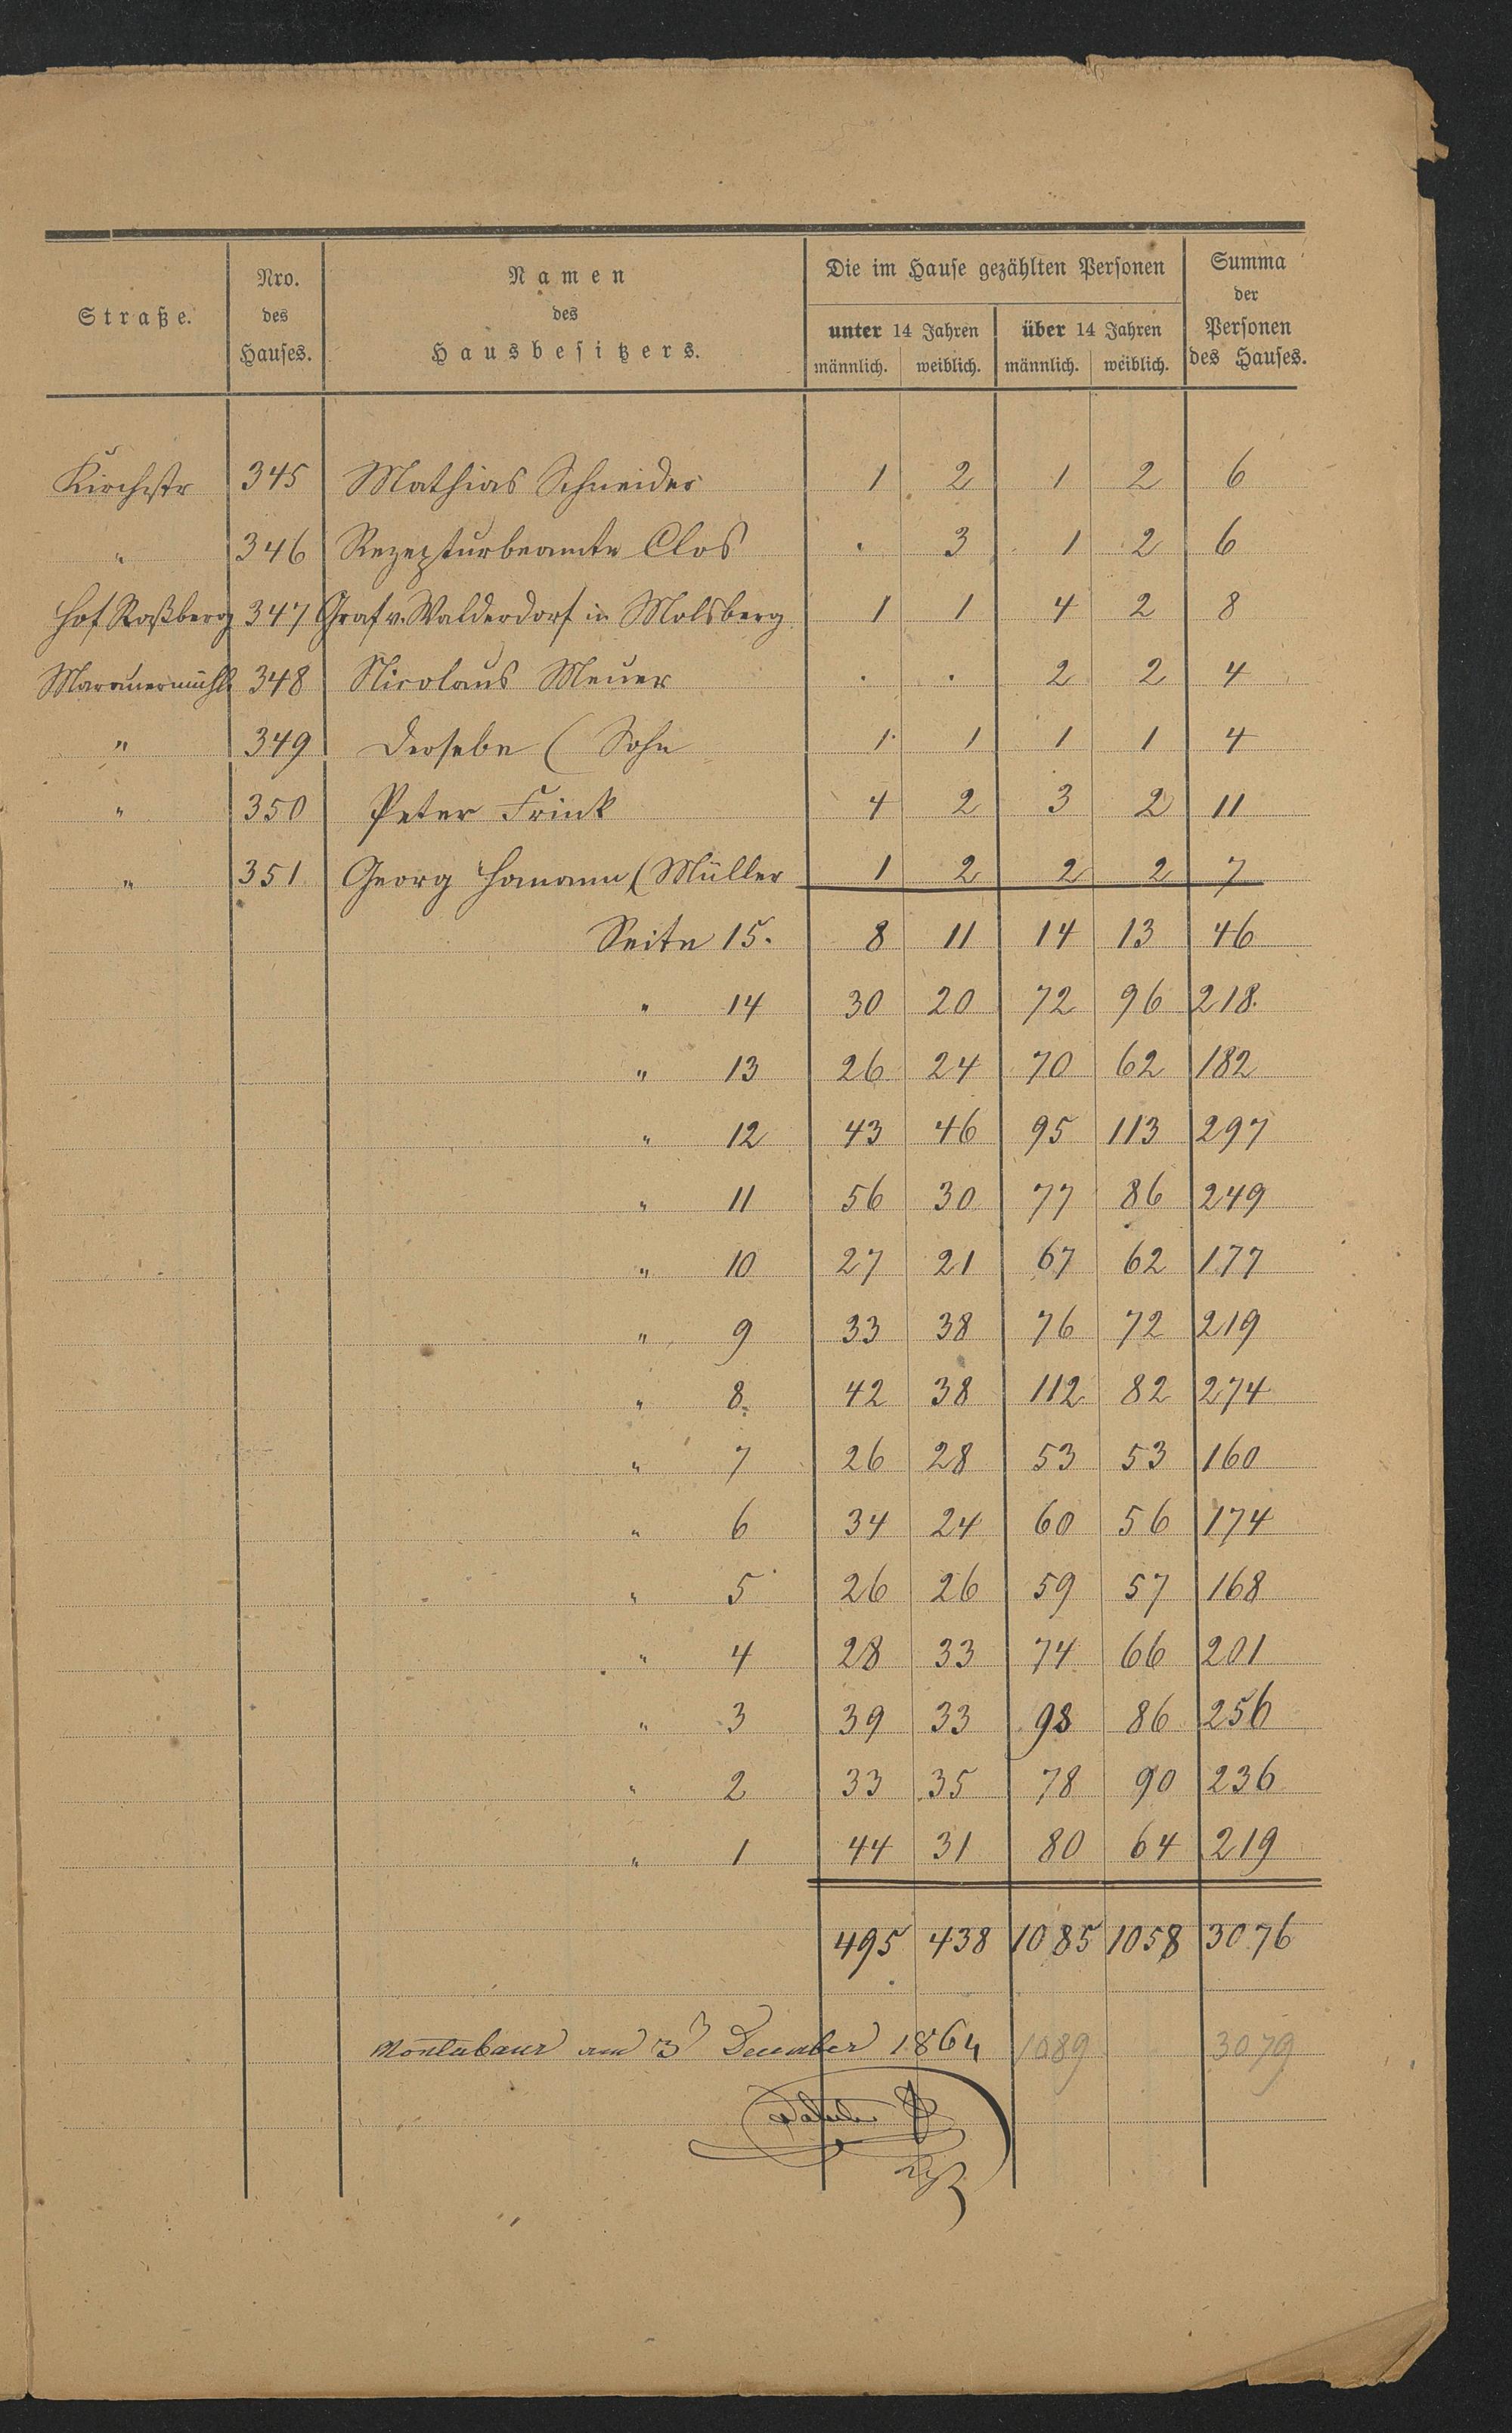 Straße. Nro. des Hauses. Namen des Hausbesitzers. Die im Hause gezählten Personen Summa der Personen des Hauses.
unter 14 Jahren über 14 Jahren
männlich. weiblich. männlich. weiblich.
Kirchstr 345 Mathias Schneider 1 2 1 2 6
" 346 Rezepturbeamte Clos . 3 1 2 6
Hof Roßberg 347 Graf v. Walderdorf in Molsberg 1 1 4 2 8
348 Nicolaus Meuer . . 2 2 4
" 349 Derselbe ( Sohn 1 1 1 1 4
" 350 Peter Frink 4 2 3 2 11
" 351 Georg Hamann ( Müller 1 2 2 2 7
Seite 15. 8 11 14 13 46
" 14 30 20 72 96 218.
" 13 26 24 70 62 182
" 12 43 46 95 113 297
" 11 56 30 77 86 249
" 10 27 21 67 62 177
" 9 33 38 76 72 219
" 8. 42 38 112 82 274
" 7 26 28 53 53 160
" 6 34 24 60 56 174
" 5 26 26 59 57 168
" 4 28 33 74 66 201
" 3 39 33 98 86 256
" 2 33 35 78 90 236
" 1 44 31 80 64 219
495 438 1085 1058 3076
Montabaur am 3 December 1864 1089 3079